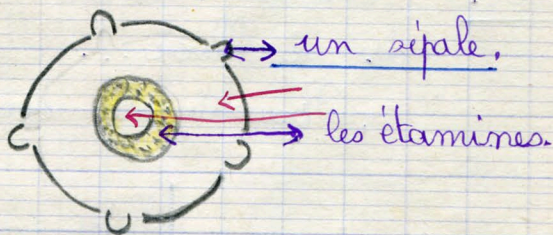 un sépale.
les étamines.